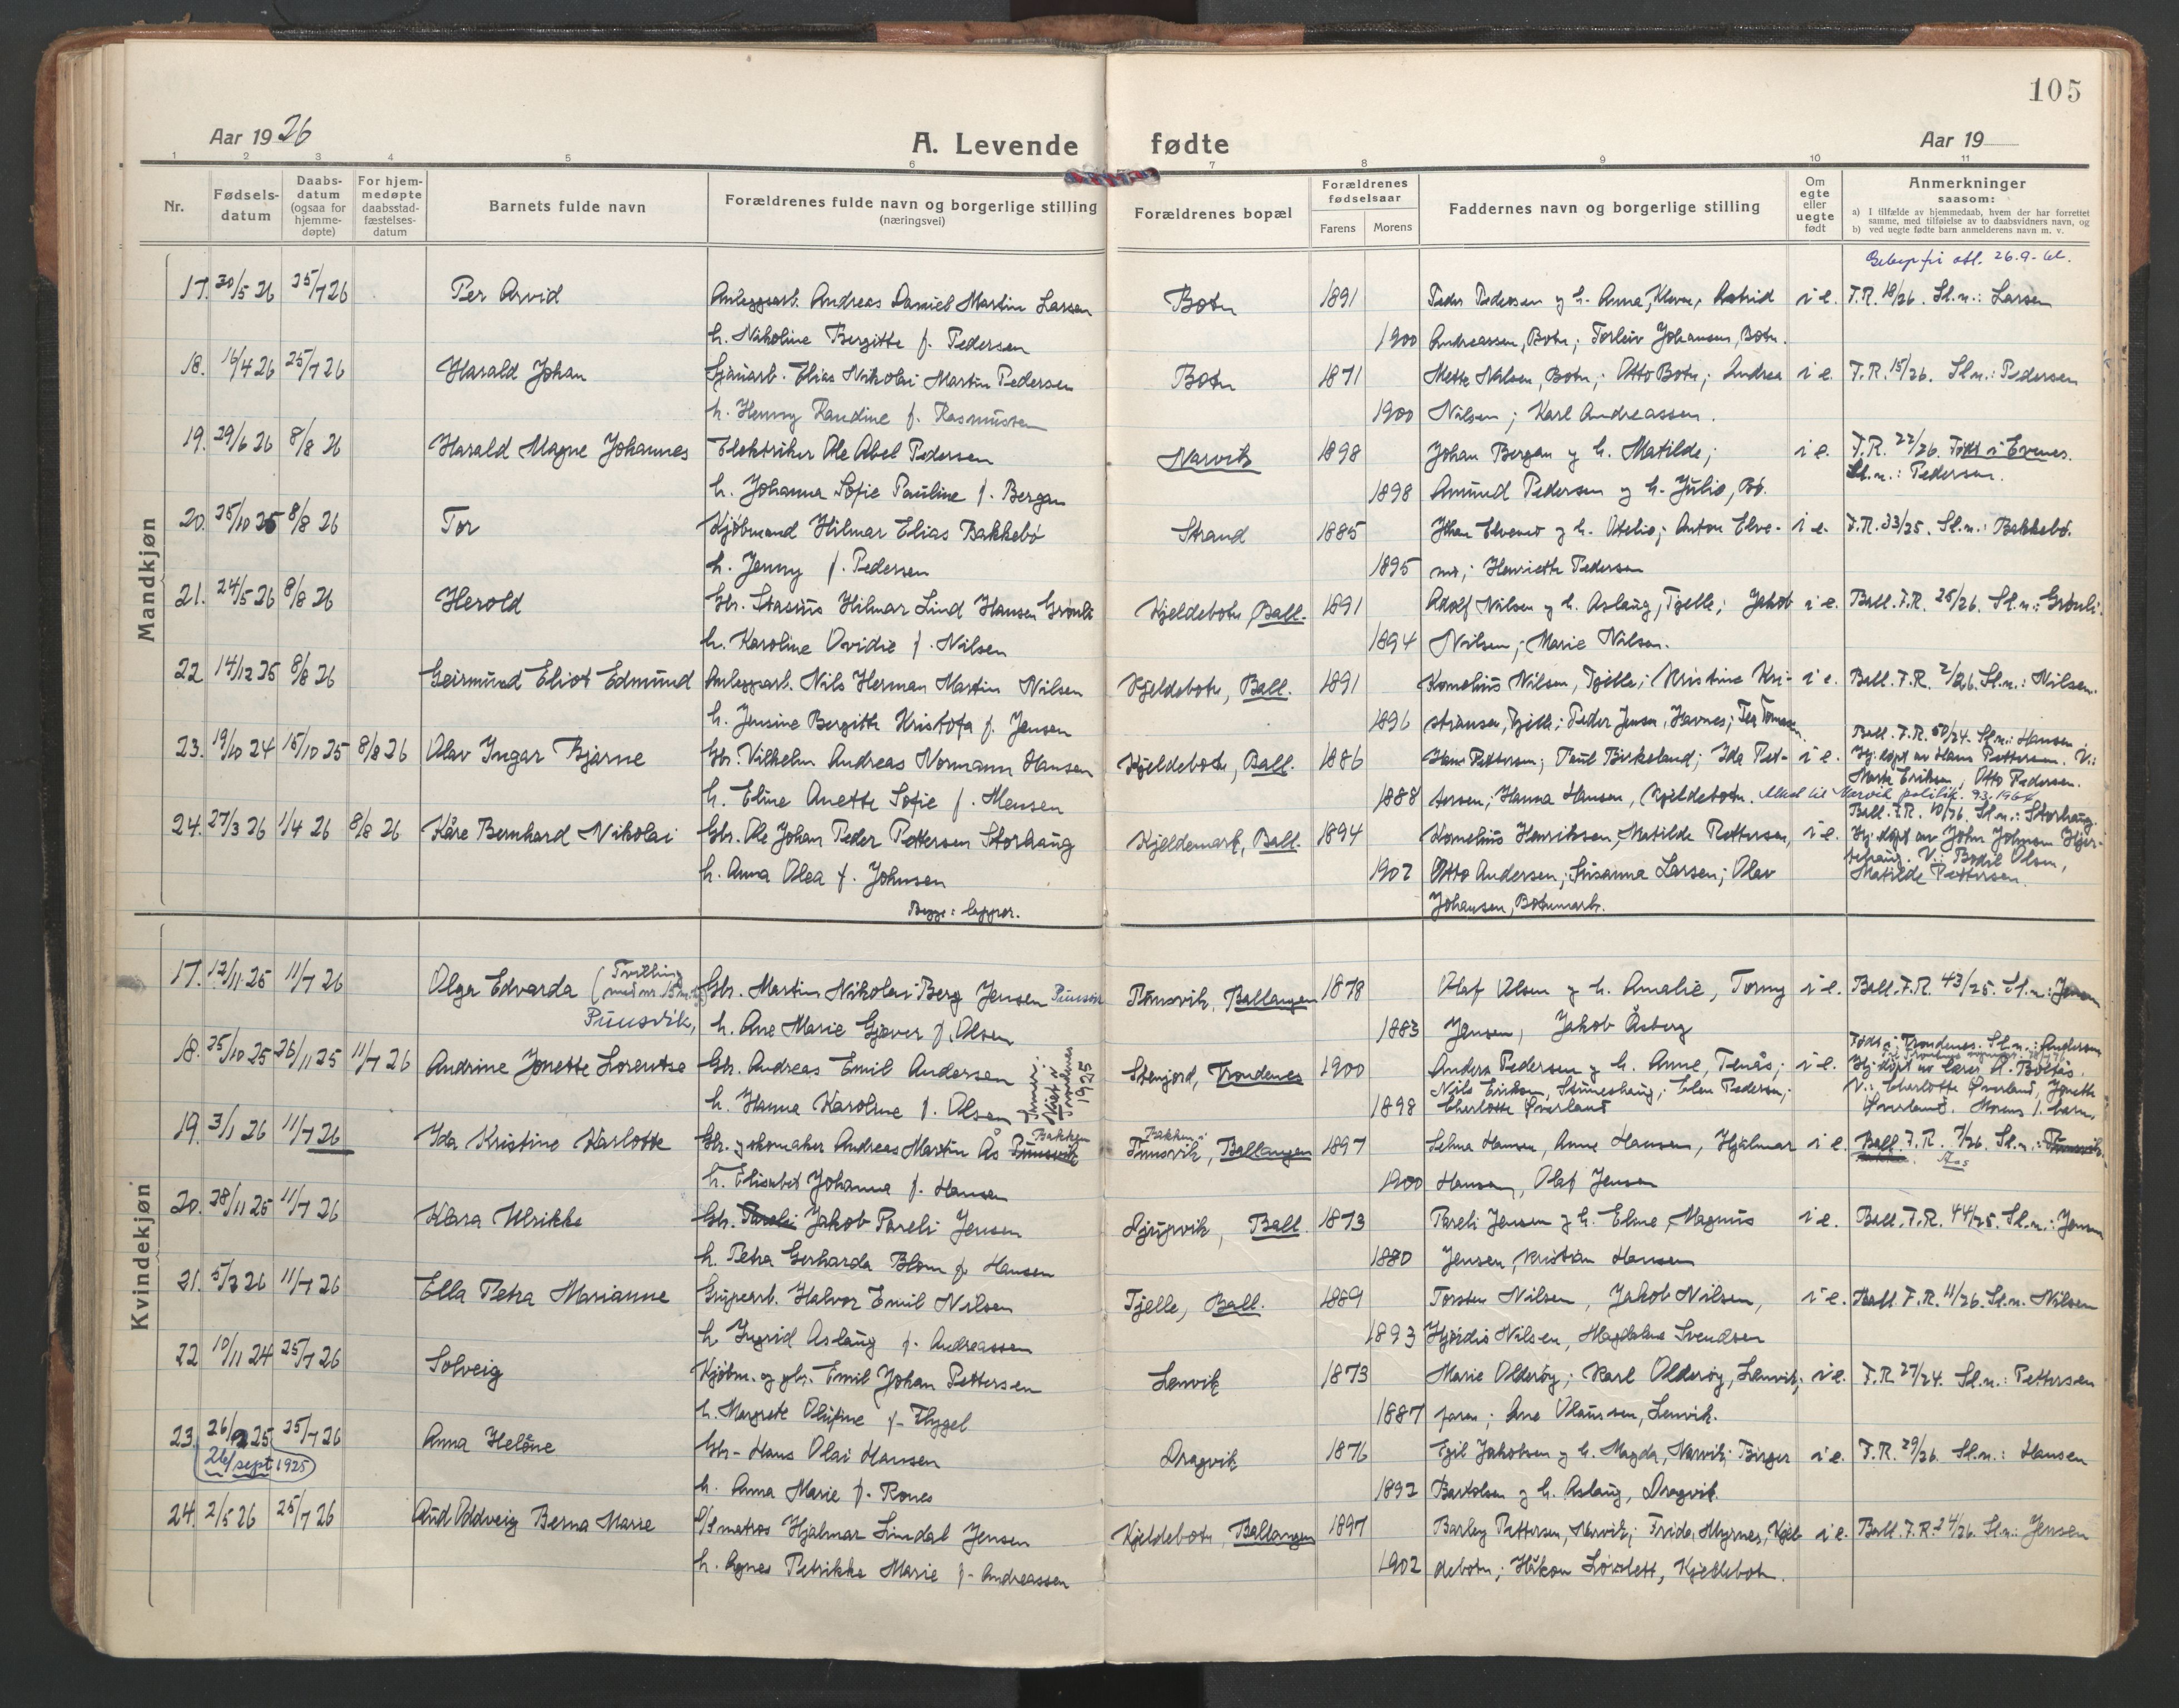 105
Aar 1926 A. Levende fødte Aar 19
1 2 3 4 5 6 7 8 9 10 11
Nr. Fødsels-datum Daabs-datum (ogsaa for hjemme-døpte) For hjem-medøpte daabsstad-fæstelses-datum Barnets fulde navn Forældrenes fulde navn og borgerlige stilling (næringsvei) Forældrenes bopæl Forældrenes fødselsaar Farens Morens Faddernes navn og borgerlige stilling Om egte eller uegte født Anmerkninger saasom:
a) I tilfælde av hjemmedaab, hvem der har forrettet samme, med tilføielse av to daabsvidners navn, og
b) ved uegte fødte barn anmelderens navn m. v.
Mandkjøn
17. 30/5 26 25/7 26 Per Arvid Anleggsarb. Andreas Daniel Martin Larsen Botn 1891 Peder Pedersen g h. Anna, Klara, Astrid i e. F.R. 18/26. Sl.n.: Larsen
h. Nikoline Bergitte f. Pedersen 1900 Andreassen, Botn; Torleiv Johansen, Botn.
18. 16/4 26 25/7 26 Harald Johan Sjauarb. Elias Nikolai Martin Pedersen Botn 1871 Mette Nilsen, Botn; Otto Botn; Andrea i e. F.R. 15/26. Sl.n.: Pedersen
h. Henny Randine f. Rasmussen 1900 Nilsen; Karl Andreassen.
19. 29/6 26 8/8 26 Harald Magne Johannes Elektriker Ole Abel Pedersen Narvik 1898 Johan Bergan g h. Matilde; i e. F.R. 22/26. Født i Evenes.
Sl.n.: Pedersen.
h. Johanna Sofie Pauline f. Bergan 1898 Amund Pedersen g h. Julie, Bø.
20. 25/10 25 8/8 26 Tor Kjøbmand Hilmar Elias Bakkebø Strand 1885 Johan Elvenes g h. Otelie; Anton Elve- i e. F.R. 33/25. Sl.n.: Bakkebø.
h. Jenny f. Pedersen 1895 nes; Henriette Pedersen
21. 24/5 26 8/8 26 Herold Gbr. Stasius Hilmar Lind Hansen Grønli Kjeldebotn, Ball. 1891 Adolf Nilsen g h. Aslaug, Tjelle; Jakob i e. Ball. F.R. 25/26. Sl.n.: Grønli.
h. Karoline Ovidie f. Nilsen 1894 Nilsen; Marie Nilsen.
22 14/12 25 8/8 26 Geirmund Eliot Edmund Anleggsarb. Nils Herman Martin Nilsen Kjeldebotn, Ball. 1891 Kornelius Nilsen, Tjelle; Kristine Kri- i e. Ball. F.R. 2/26. Sl.n.: Nilsen.
h. Jensine Bergitte Kristofa f. Jensen 1896 stiansen, Tjelle; Peder Jensen, Havnes;
23. 19/10 24 15/10 25 8/8 26 Olav Ingar Bjarne Gbr. Vilhelm Andreas Normann Hansen Kjeldebotn, Ball. 1886 Hans Pettersen; Paul Birkeland; Ida Pet- i e. Ball. F.R. 50/24. Sl.n.: Hansen.
Hj.døpt av Hans Pettersen. V.:
h. Eline Anette Sofie f. Mensen 1888 tersen; Hanna Hansen, Kjeldebotn. Marte Eriksen, Otto Pedersen.
24. 27/3 26 1/4 26 8/8 26 Kåre Bernhard Nikolai Gbr. Ole Johan Peder Pettersen Storhaug Kjeldemark, Ball. 1894 Kornelius Henriksen, Matilde Pettersen, i e. Ball. F.R. 10/26. Sl.n.: Storhaug.
Hj.døpt av John Johnsen
h. Anna Olea f. Johnsen 1902 Otto Andersen; Susanna Larsen; Olav V.: Bodil Olsen,
Matilde Pettersen.
Begge: lapper. Johansen, Botnmark.
Kvindekjøn
17. 12/11 25 11/7 26 Olga Edvarda (Tvilling Gbr. Martin Nikolai Berg Jensen Punsvik Punsvik, Ballangen 1878 Olaf Olsen g h. Amalie, Tormy i e. Ball. F.R. 43/25. Sl.n.: Jensen
Punsvik, h. Ane Marie Gjæver f. Olsen 1883 Jensen, Jakob Åsberg
18. 25/10 25 26/11 25 11/7 26 Andrine Jonette Lorentse Gbr. Andreas Emil Andersen Stenjord, Trondenes 1900 Anders Pedersen g h. Anne, Tenås; i e. Født i Trondenes. Sl.n.: Andersen
Hj.døpt av lærer A. Boltås.
h. Hanna Karoline f. Olsen 1898 Nils Eriksen, Steineshaug; Elen Pedersen; V.: Charlotte Øverland, Jonette
Charlotte Øverland Øverland. Morens 1. barn.
19. 3/1 26 11/7 26 Ida Kristine Karlotte Gbr. g skomaker Andreas Martin Ås Punsvik Bakken Bakken i Punsvik, Ballangen 1897 Selma Hansen, Anne Hansen, Hjalmar i e. Ball. F.R. 7/26. Sl.n.: Punsvik.
Aas
h. Elisabet Johanna f. Hansen 1900 Hansen, Olaf Jensen
20. 28/11 25 11/7 26 Klara Ulrikke Gbr. Pareli Jakob Pareli Jensen Djupvik, Ball. 1873 Pareli Jensen g h. Eline, Magnus i e. Ball. F.R. 44/25. Sl.n.: Jensen
h. Petra Gerharda Blom f. Hansen 1880 Jensen, Kristian Hansen
21. 5/2 26 11/7 26 Ella Petra Marianne Grupearb. Halvor Emil Nilsen Tjelle, Ball. 1889 Torsten Nilsen, Jakob Nilsen, i e. Ball. F.R. 11/26. Sl.n. Nilsen
h. Ingrid Aslaug f. Andreassen 1893 Hjørdis Nilsen, Magdalena Svendsen
22 10/11 24 25/7 26 Solveig Kjøbm. og gbr. Emil Johan Pettersen Lenvik 1873 Marie Olderøy; Karl Olderøy, Lenvik; i e. F.R. 27/24. Sl.n.: Pettersen
h. Margrete Olufine f. Flygel 1887 faren; Ane Olaussen, Lenvik.
23. 26/9 25 25/7 26 Anna Heléne Gbr. Hans Olai Hansen Dragvik 1876 Egil Jakobsen g h. Magda, Narvik; Birger i e. F.R. 29/26. Sl.n.: Hansen
26/sept 1925
h. Anna Marie f. Rones 1892 Bartolsen g h. Aslaug, Dragvik.
24. 2/5 26 25/7 26 Aud Oddveig Berna Marie matros Hjalmar Lindal Jensen Kjeldebotn, Ballangen 1897 Barley Pettersen, Narvik; Frida Myrnes, Kjel- i e. Ball. F.R. 24/26. Sl.n.: Jensen
h. Agnes Petrikke Marie f. Andreassen 1902 debotn; Håkon Løvdett, Kjeldebotn.